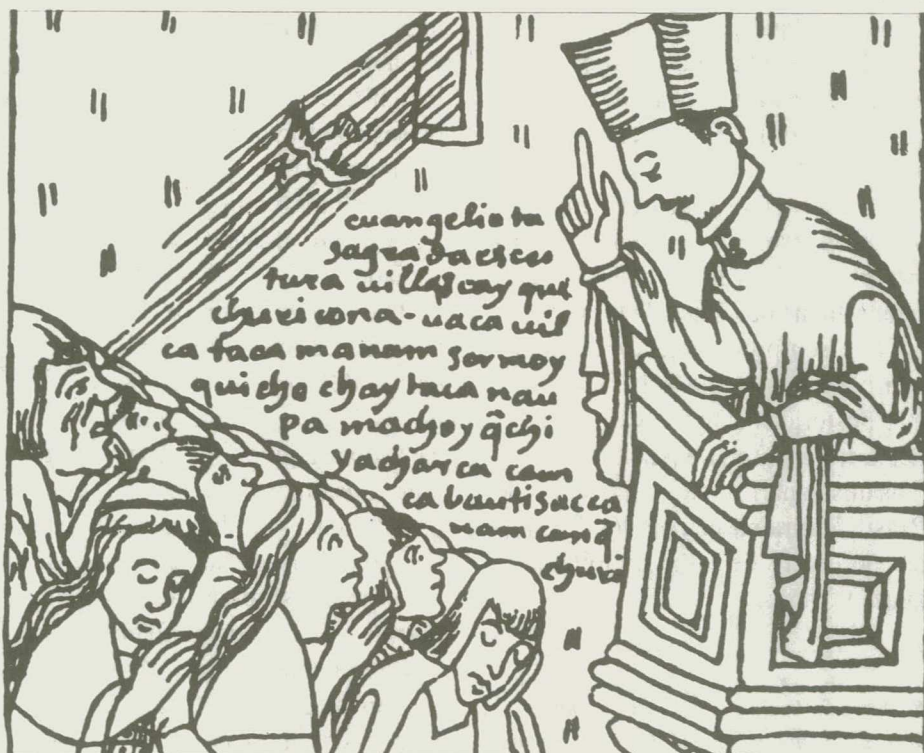 euangelio ta
sagrada escri
tura uillascayqui
churicona - uaca uil
ca taca manam sermoy
quicho chaytaca nau
pa machoyq̃chi
yacharca cam
ca bautisacca
nam canq̃
churi